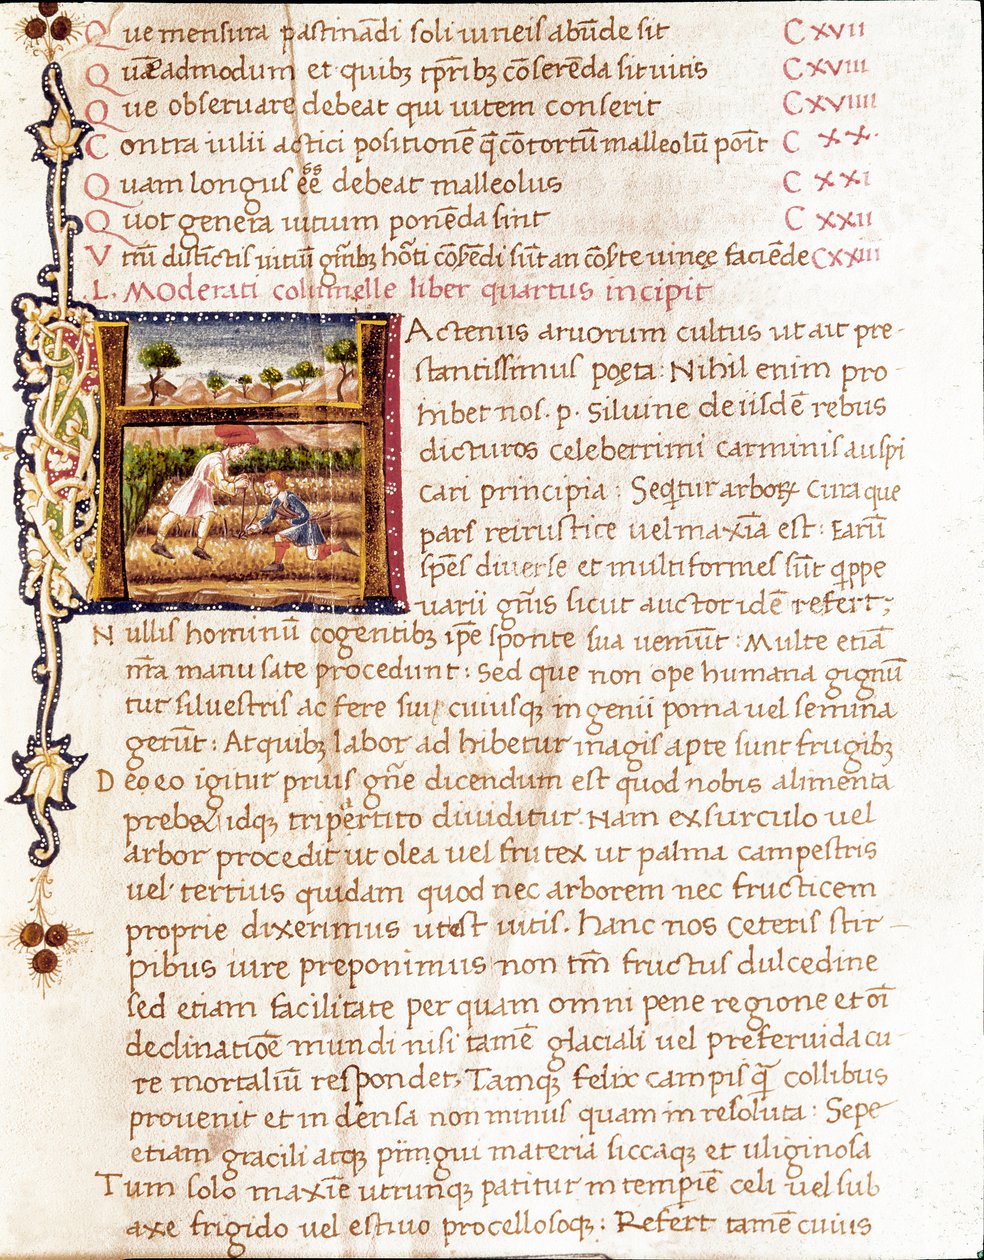 Que mensura pastinādi soli iurieis abūde sit C XVII
Quēadmodum et quibꝫ tp̄ribꝫ cōserēda sit uitis C XVIII
Que obseruare debeat qui uitem conserit C XVIIII
Contra iulii actici positionē q̄ cōtortū malleolū poīt C XX.
Quam longus eē debeat malleolus C XXI
Quot genera uitium ponēda sint C XXII
Vtrū distīctis uitiū gn̄ibꝫ CXXIII
L. Moderati columelle liber quartus incipit
HActenus aruorum cultus ut ait pre-
stantissimus poeta: Nihil enim pro-
hibet nos. p. Siluine de iisdē rebus
dicturos celeberrimi carminis auspi
cari principia: Seqtur arboꝝ cura que
pars rei rustice uel maxīa est: Earū
sp̄es diuerse et multiformes sūt qppe
uarii gn̄is sicut auctor idē refert;
Nullis hominū cogentibꝫ ip̄e sponte sua ueniūt: Multe etiā
nr̄a manu sate procedunt: Sed que non ope humana gignū
tur siluestris ac fere sui cuiusqꝫ ingenii poma uel semina
gerūt: At quibꝫ labor adhibetur magis apte sunt frugibꝫ
De eo igitur prius gn̄e dicendum est quod nobis alimenta
prebet idqꝫ tripertito diuiditur. Nam ex surculo uel
arbor procedit ut olea uel frutex ut palma campestris
uel tertius quidam quod nec arborem nec fructicem
proprie dixerimus ut est uitis. hanc nos ceteris stir-
pibus iure preponimus non tm̄ fructus dulcedine
sed etiam facilitate per quam omni pene regione et oī
declinatiōe mundi nisi tamē glaciali uel preferuida cu-
re mortaliū respondet, Tamqꝫ felix campis q̄ collibus
prouenit et in densa non minus quam in resoluta: Sepe
etiam gracili atqꝫ pīngui materia siccaqꝫ et uliginosa
Tum solo maxīe utrunqꝫ patitur intemp̄iē celi uel sub
axe frigido uel estiuo procellosoqꝫ: Refert tamē cuius